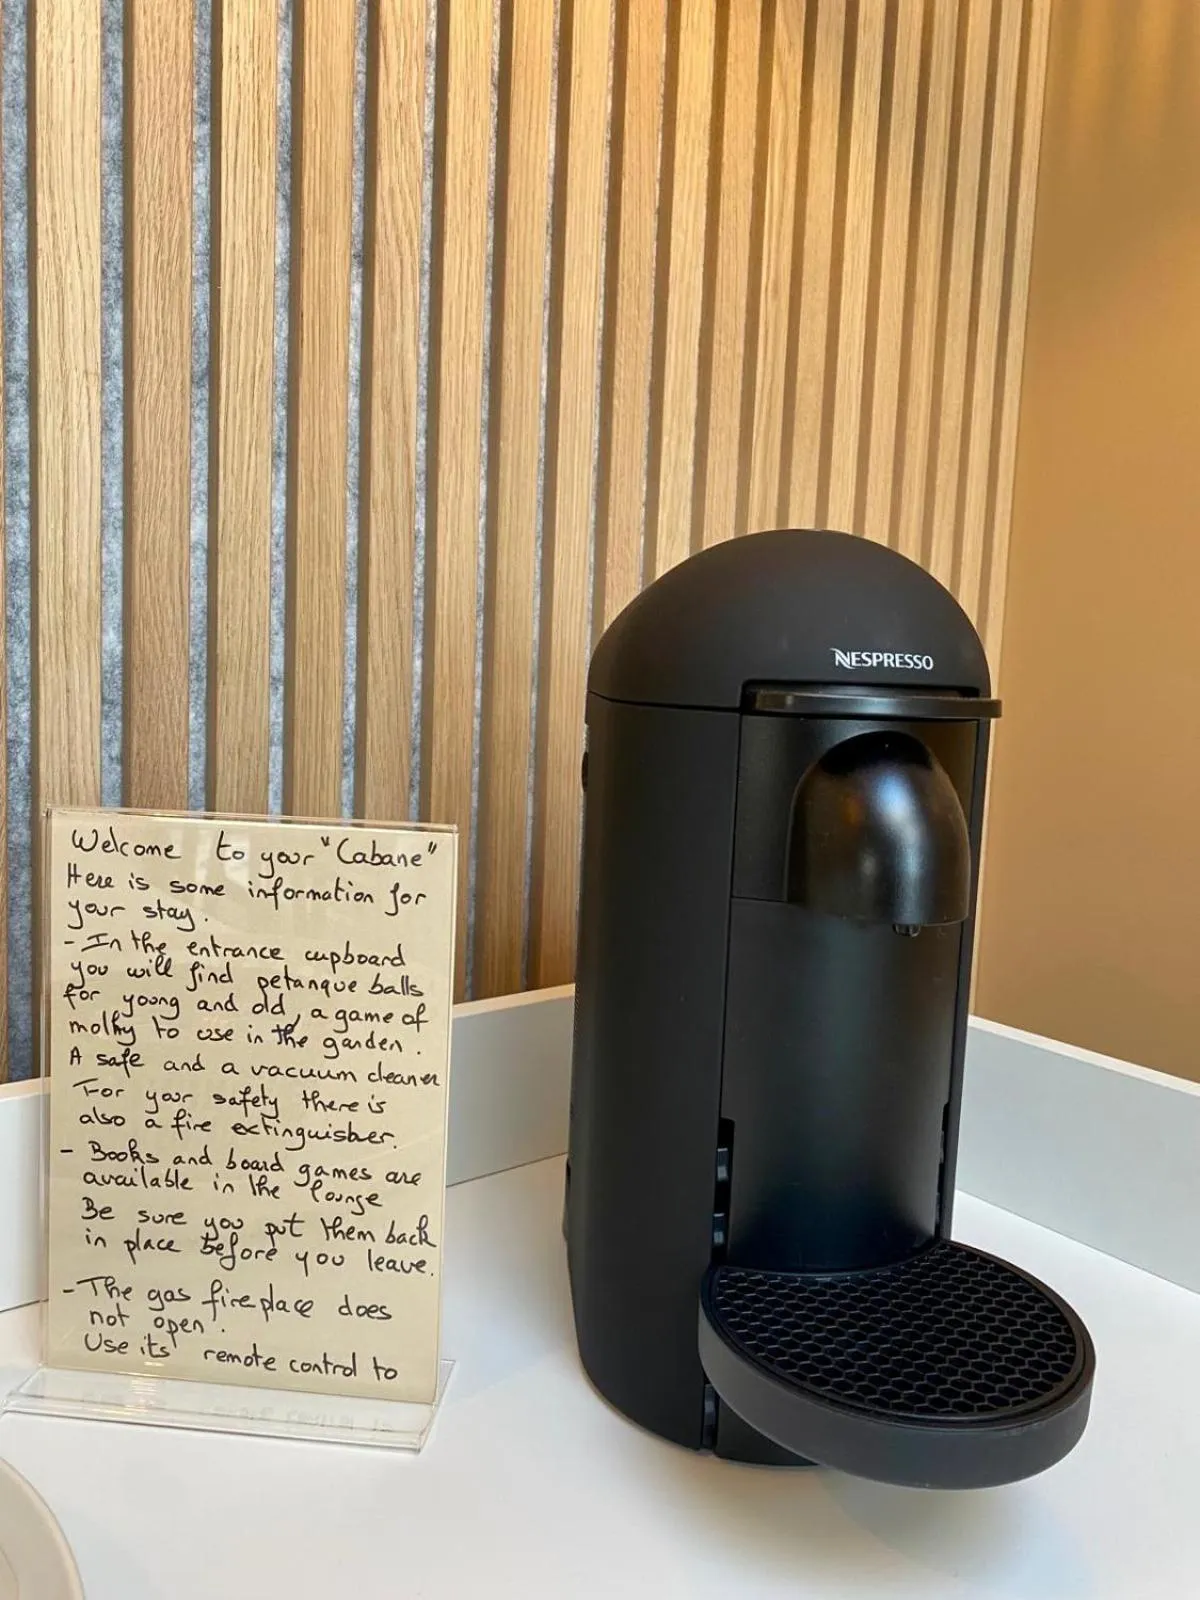 Welcome to your "Cabane"
Here is some information for
your stay.
- In the entrance cupboard
you will find petanque balls
for young and old, a game of
molky to use in the garden.
A safe and a vacuum cleaner
For your safety there is
also a fire extinguisher.
- Books and board games are
available in the lounge
Be sure you put them back
in place before you leave.
- The gas fireplace does
not open.
Use its remote control to
NESPRESSO